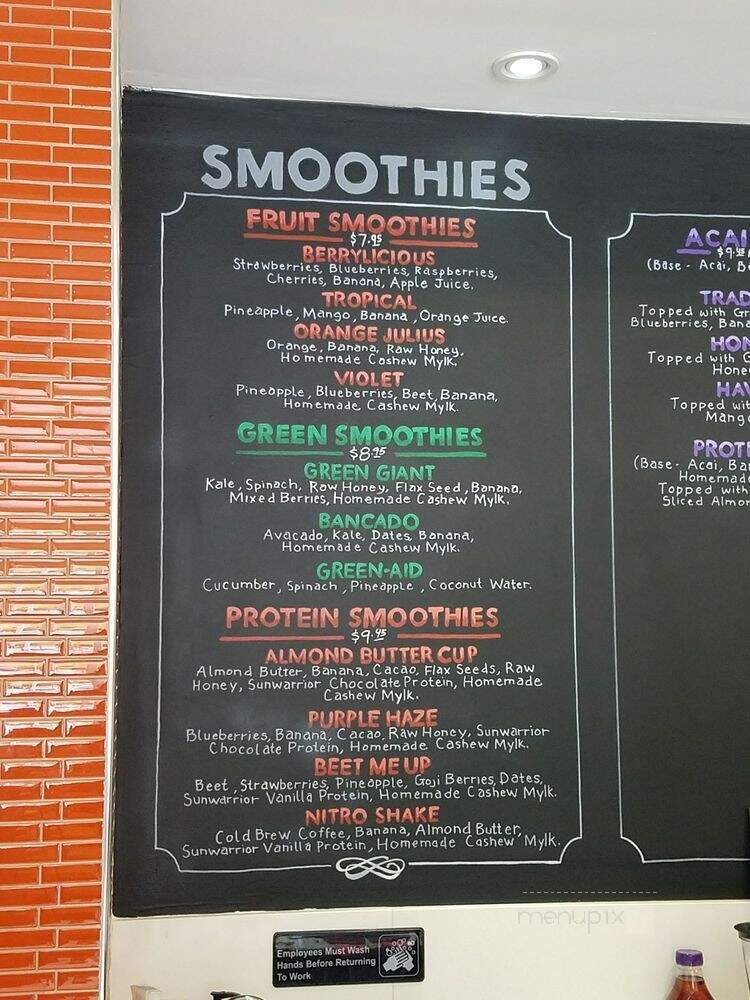 SMOOTHIES
FRUIT SMOOTHIES
$7.95
BERRYLICIOUS
Strawberries, Blueberries, Raspberries,
Cherries, Banana, Apple Juice.
TROPICAL
Pineapple, Mango, Banana, Orange Juice.
ORANGE JULIUS
Orange, Banana, Raw Honey,
Homemade Cashew Mylk.
VIOLET
Pineapple, Blueberries, Beet, Banana,
Homemade Cashew Mylk.
GREEN SMOOTHIES
$8.95
GREEN GIANT
Kale, Spinach, Raw Honey, Flax Seed, Banana,
Mixed Berries, Homemade Cashew Mylk.
BANCADO
Avacado, Kale, Dates, Banana,
Homemade Cashew Mylk.
GREEN-AID
Cucumber, Spinach, Pineapple, Coconut Water.
PROTEIN SMOOTHIES
$9.45
ALMOND BUTTER CUP
Almond Butter, Banana, Cacao, Flax Seeds, Raw
Honey, Sunwarrior Chocolate Protein, Homemade
Cashew Mylk.
PURPLE HAZE
Blueberries, Banana, Cacao, Raw Honey, Sunwarrior
Chocolate Protein, Homemade Cashew Mylk.
BEET ME UP
Beet, Strawberries, Pineapple, Goji Berries, Dates,
Sunwarrior Vanilla Protein, Homemade Cashew Mylk.
NITRO SHAKE
Cold Brew Coffee, Banana, Almond Butter,
Sunwarrior Vanilla Protein, Homemade Cashew Mylk.
ACAI
$9.45
(Base - Acai, B
TRAD
Topped with Gr
Blueberries, Bana
HON
Topped with G
Honey
HAV
Topped wit
Mango
PROTE
(Base - Acai, Ba
Homemade
Topped with
Sliced Almon
Employees Must Wash
Hands Before Returning
To Work
menupix